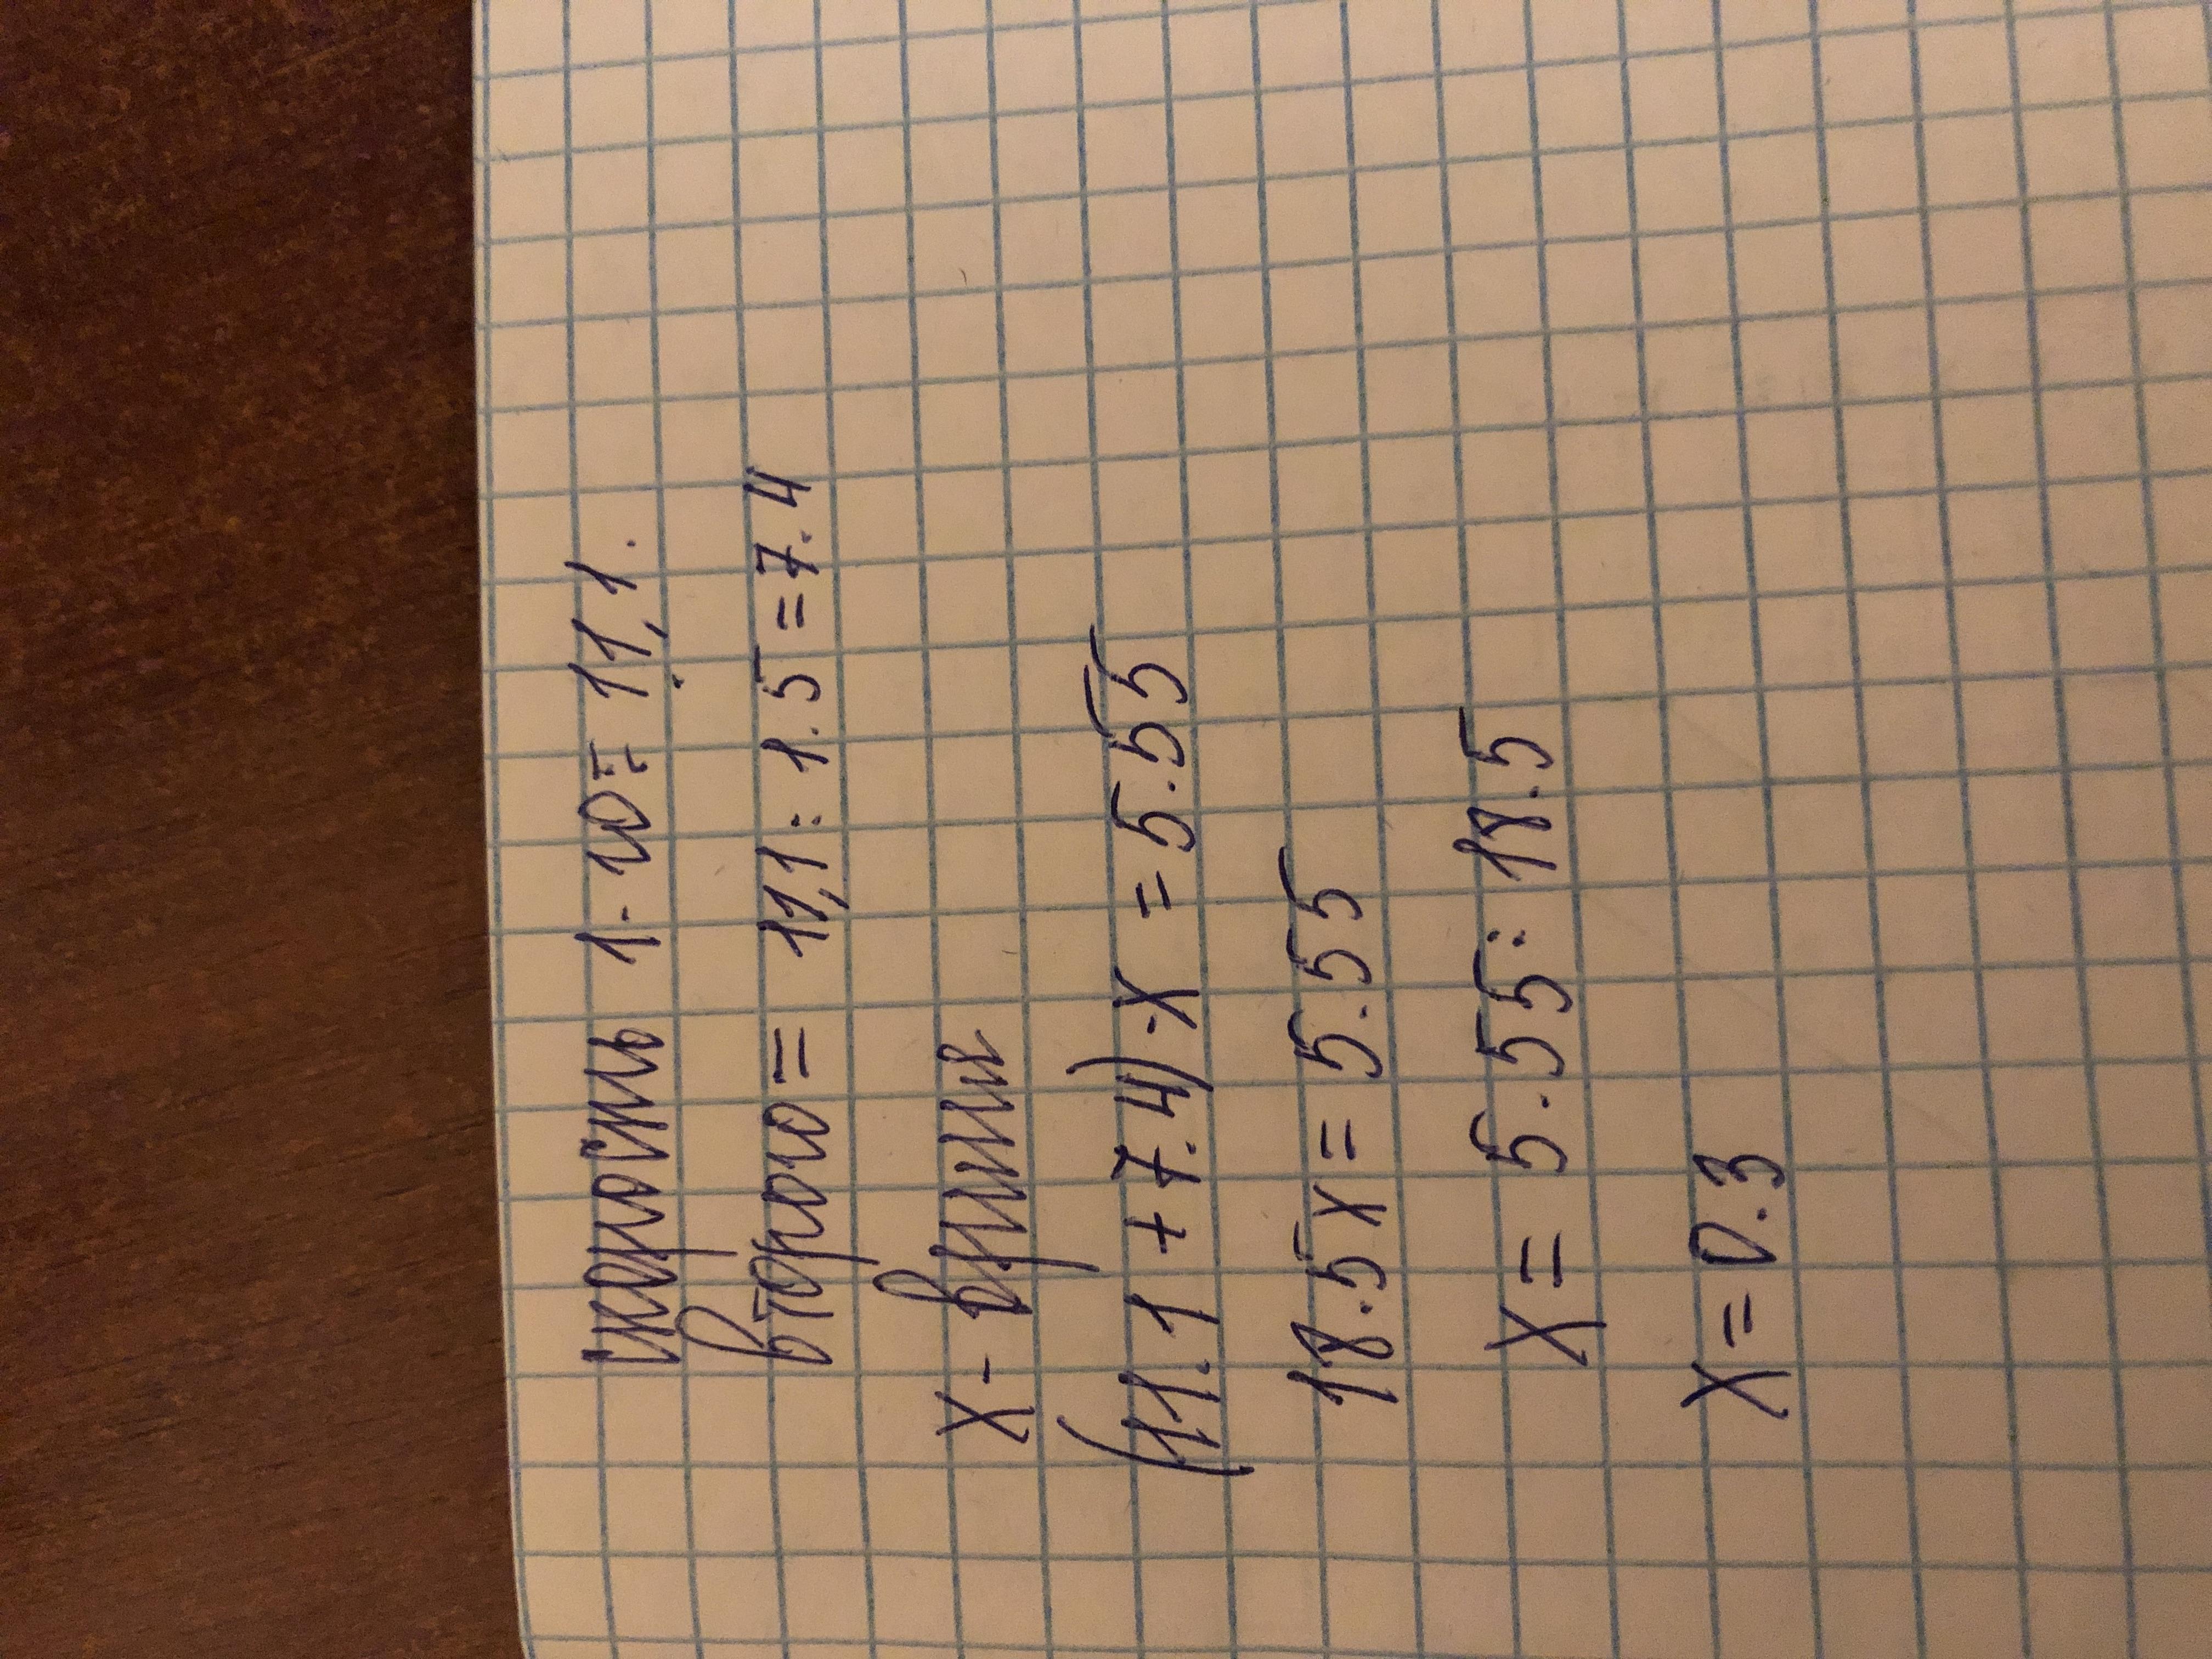 скорость 1-го = 11,1.
второго = 11,1 : 1.5 = 7.4
х - время
(11.1 + 7.4) · х = 5.55
18.5х = 5.55
х = 5.55 : 18.5
х = 0.3